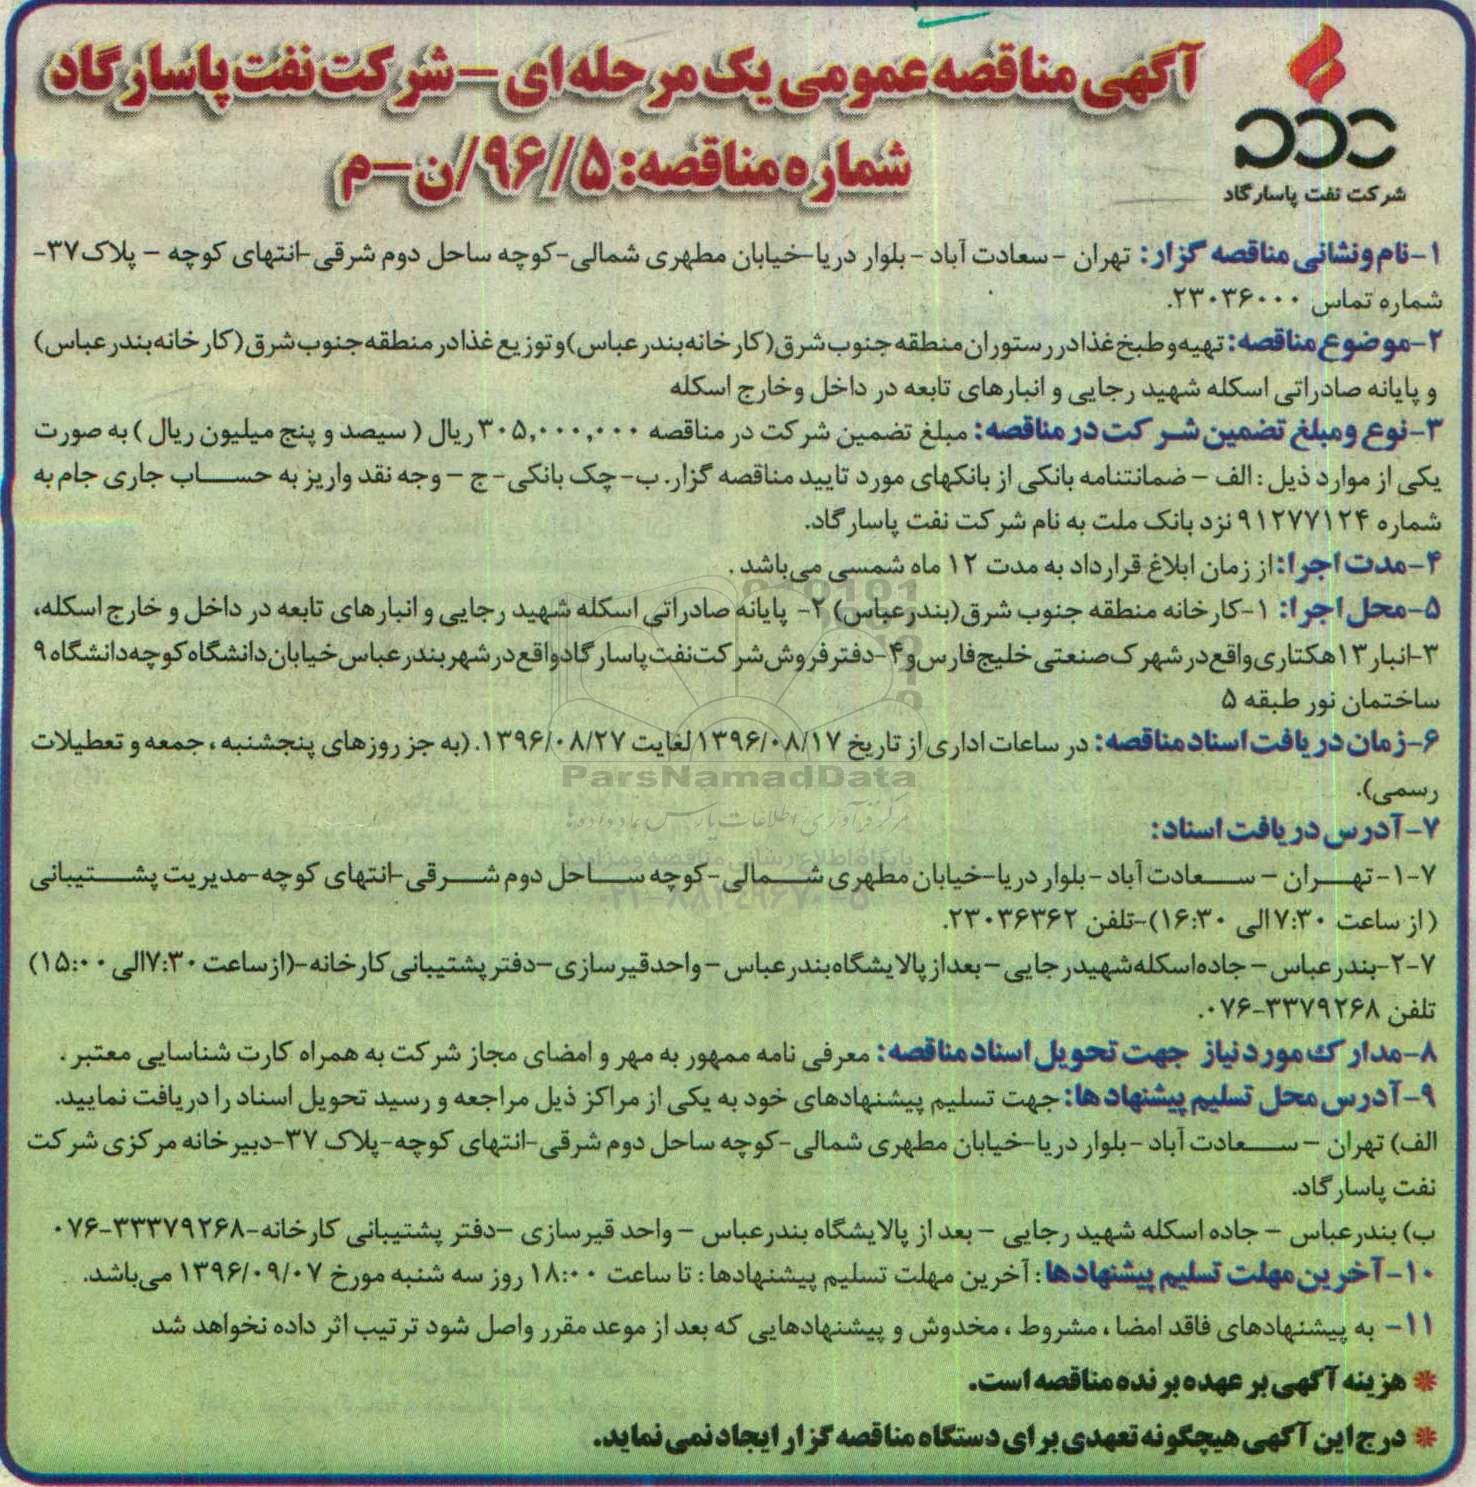 آگهی مناقصه عمومی یک مرحله ای – شرکت نفت پاسارگاد
شماره مناقصه: ۹۶/۵/ن–م
شرکت نفت پاسارگاد
۱-نام ونشانی مناقصه گزار: تهران – سعادت آباد – بلوار دریا-خیابان مطهری شمالی-کوچه ساحل دوم شرقی-انتهای کوچه – پلاک۳۷-
شماره تماس ۲۳۰۳۶۰۰۰.
۲-موضوع مناقصه: تهیه وطبخ غذادررستوران منطقه جنوب شرق(کارخانه بندرعباس)وتوزیع غذادرمنطقه جنوب شرق(کارخانه بندرعباس)
و پایانه صادراتی اسکله شهید رجایی و انبارهای تابعه در داخل وخارج اسکله
۳-نوع ومبلغ تضمین شرکت در مناقصه: مبلغ تضمین شرکت در مناقصه ۳۰۵,۰۰۰,۰۰۰ ریال ( سیصد و پنج میلیون ریال ) به صورت
یکی از موارد ذیل : الف – ضمانتنامه بانکی از بانکهای مورد تایید مناقصه گزار. ب- چک بانکی- ج – وجه نقد واریز به حساب جاری جام به
شماره ۹۱۲۷۷۱۲۴ نزد بانک ملت به نام شرکت نفت پاسارگاد.
۴-مدت اجرا: از زمان ابلاغ قرارداد به مدت ۱۲ ماه شمسی می‌باشد .
۵-محل اجرا: ۱-کارخانه منطقه جنوب شرق(بندرعباس) ۲- پایانه صادراتی اسکله شهید رجایی و انبارهای تابعه در داخل و خارج اسکله،
۳-انبار۱۳هکتاری واقع در شهرک صنعتی خلیج فارس و۴-دفترفروش شرکت نفت پاسارگادواقع درشهربندرعباس خیابان دانشگاه کوچه دانشگاه ۹
ساختمان نور طبقه ۵
۶-زمان دریافت اسناد مناقصه: در ساعات اداری از تاریخ ۱۳۹۶/۰۸/۱۷ لغایت ۱۳۹۶/۰۸/۲۷. (به جز روزهای پنجشنبه ، جمعه و تعطیلات
رسمی).
۷-آدرس دریافت اسناد:
۷-۱- تهران – سعادت آباد – بلوار دریا-خیابان مطهری شمالی-کوچه ساحل دوم شرقی-انتهای کوچه-مدیریت پشتیبانی
(از ساعت ۷:۳۰ الی ۱۶:۳۰)-تلفن ۲۳۰۳۶۳۶۲.
۷-۲-بندرعباس – جاده اسکله شهیدرجایی – بعدازپالایشگاه بندرعباس – واحدقیرسازی –دفترپشتیبانی کارخانه-(ازساعت ۷:۳۰الی ۱۵:۰۰)
تلفن ۳۳۷۹۲۶۸-۰۷۶.
۸-مدارک مورد نیاز جهت تحویل اسناد مناقصه: معرفی نامه ممهور به مهر و امضای مجاز شرکت به همراه کارت شناسایی معتبر .
۹-آدرس محل تسلیم پیشنهاد ها: جهت تسلیم پیشنهادهای خود به یکی از مراکز ذیل مراجعه و رسید تحویل اسناد را دریافت نمایید.
الف) تهران – سعادت آباد – بلوار دریا-خیابان مطهری شمالی-کوچه ساحل دوم شرقی-انتهای کوچه-پلاک ۳۷-دبیرخانه مرکزی شرکت
نفت پاسارگاد.
ب) بندرعباس – جاده اسکله شهید رجایی – بعد از پالایشگاه بندرعباس – واحد قیرسازی –دفتر پشتیبانی کارخانه-۳۳۳۷۹۲۶۸-۰۷۶
۱۰-آخرین مهلت تسلیم پیشنهادها: آخرین مهلت تسلیم پیشنهادها : تا ساعت ۱۸:۰۰ روز سه شنبه مورخ ۱۳۹۶/۰۹/۰۷ می‌باشد.
۱۱- به پیشنهادهای فاقد امضا ، مشروط ، مخدوش و پیشنهادهایی که بعد از موعد مقرر واصل شود ترتیب اثر داده نخواهد شد
* هزینه آگهی بر عهده برنده مناقصه است.
* درج این آگهی هیچگونه تعهدی برای دستگاه مناقصه گزار ایجاد نمی نماید.
ParsNamadData
مرکز فرآوری اطلاعات پارس نماد داده‌ها
پایگاه اطلاع رسانی مناقصه و مزایده
۰۲۱-۸۸۳۴۹۶۷۰-۵